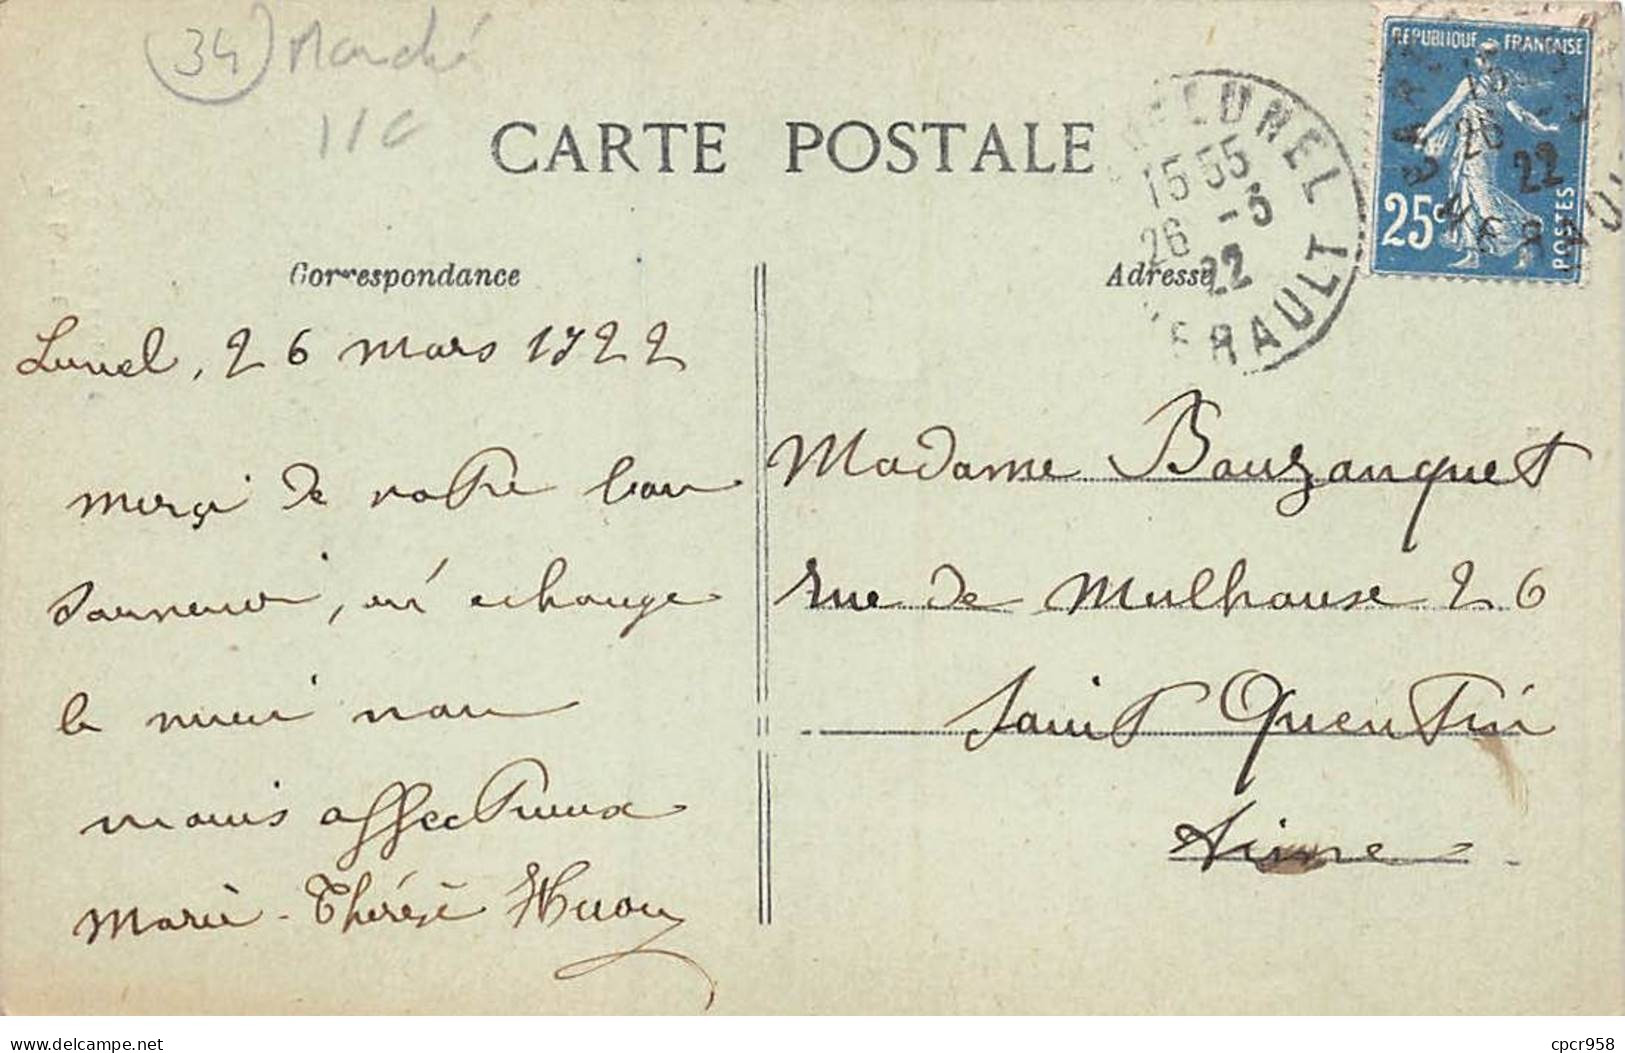 34 Marché
11c
CARTE POSTALE
RÉPUBLIQUE FRANÇAISE
25c
POSTES
LUNEL
15 55
26 -3
22
HÉRAULT
Correspondance
Adresse
Lunel, 26 mars 1922
merçi de votre bon
souvenir, en échange
le mien non
moins affectueux
Marie-Thérèse
Madame Bouzanquet
rue de Mulhouse 26
Saint Quentin
Aisne
delcampe.net
cpcr958